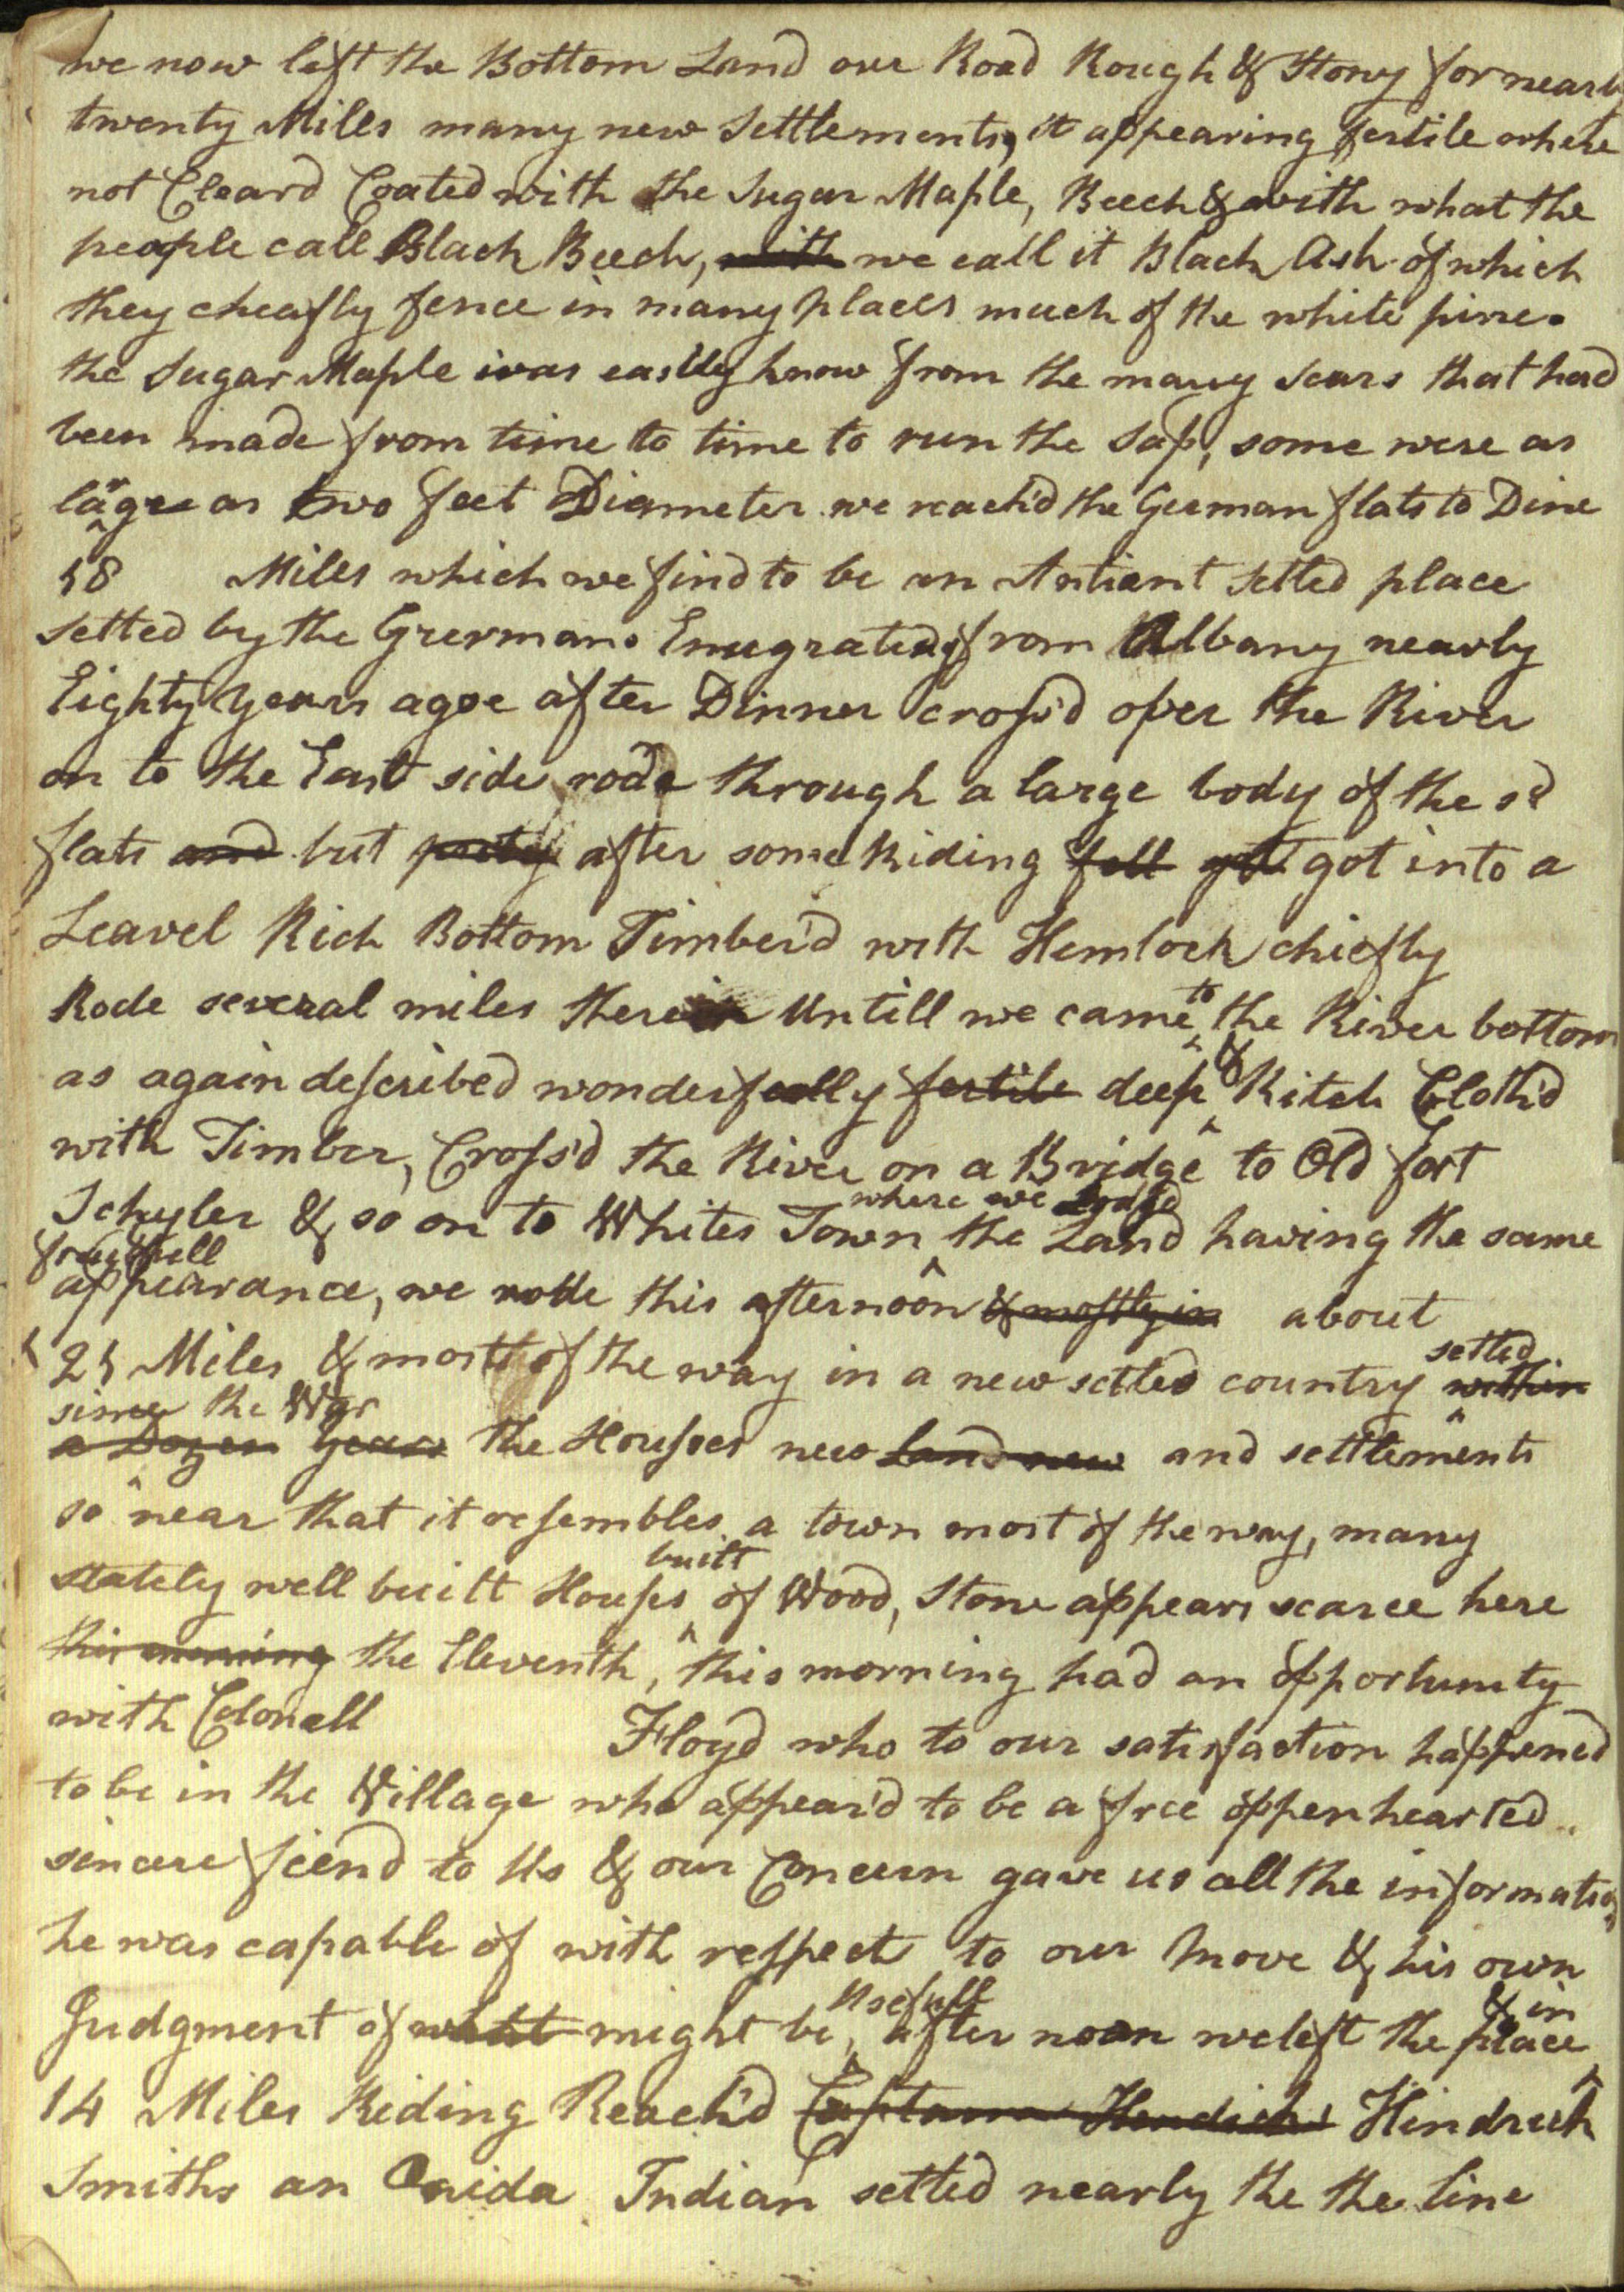 we now left the Bottom Land our Road Rough & Stony for nearly
twenty Miles many new Settlements, it appearing fertile where
not Cleard Coated with the Sugar Maple, Beech & with what the
people call Black Beech, with we call it Black Ash of which
they cheafly fence in many places much of the white pine.
the Sugar Maple was easily know from the many scars that had
been made from time to time to run the Sap, some were as
large as two feet Diameter we reach'd the German flats to Dine
18 Miles which we find to be an Antient Setled place
Setled by the Germans Emugrated from Albany nearly
Eighty years agoe after Dinner cross'd over the River
on to the East side rode through a large body of the sd
flats and but after some Riding fell got got into a
Leavel Rich Bottom Timber'd with Hemlock chiefly
Rode several miles therein Untill we came to the River bottom
as again described wonderfully fertile deep & Ritch Cloth'd
with Timber, Cross'd the River on a Bridge to Old fort
where we Lodg'd
Schyler & so on to Whites Town the Land having the same
fruitfull
appearance, we rode this afternoon & mostly in about
setled
25 Miles & most of the way in a new setled country within
since the War
a Dozen Years the Housses new Land new and settlements
so near that it resembles a town most of the way, many
built
stately well built Houses of Wood, Stone appears scarce here
this morning the Eleventh, this morning had an opportunity
with Colonell Floyd who to our satisfaction happened
to be in the Village who appear'd to be a free oppenhearted
sincere fiend to Us & our Concern gave us all the information
he was capable of with respect to our Move & his own
Usefull & in
Judgment of what might be, after noon we left the place
14 Miles Riding Reach'd Captann Hendricks Hindrick
Smiths an Onida Indian setled nearly the the line